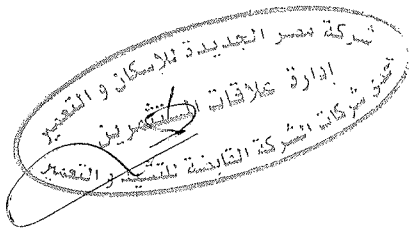 شركة مصر الجديدة للإسكان و التعمير
إدارة علاقات المستثمرين
إحدى شركات الشركة القابضة للتشييد و التعمير